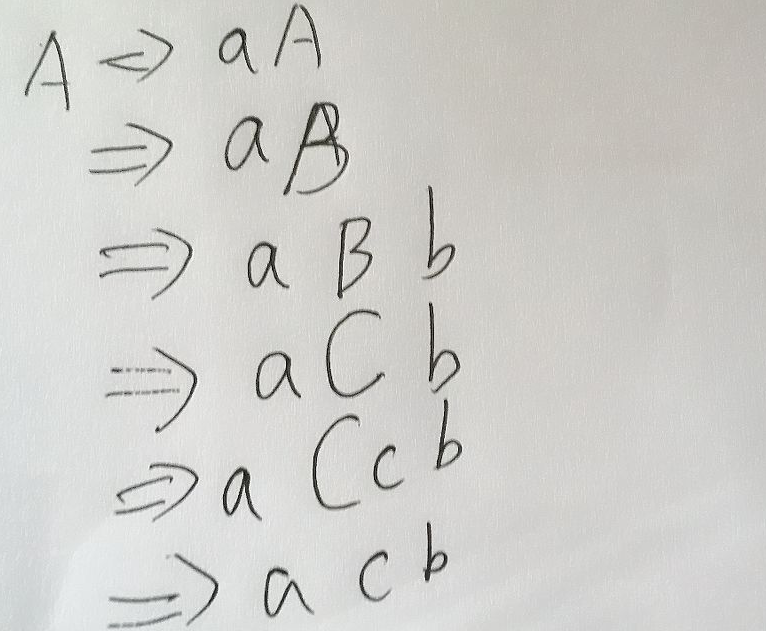 A ⇒ aA
⇒ aB
⇒ a B b
⇒ a C b
⇒ a C c b
⇒ a c b